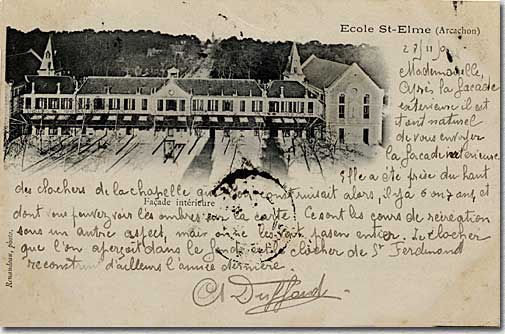 Ecole St-Elme (Arcachon)
27/11/0
Mademoiselle,
Après la façade
extérieure il est
tout naturel
de vous envoyer
la façade intérieure.
Elle a été prise du haut
des clochers de la chapelle que l'on construisait alors, il y a 6 ou 7 ans, et
Façade intérieure
dont vous pouvez voir les ombres sur la carte. Ce sont les cours de récréation
sous un autre aspect, mais on ne les voit pas en entier. Le clocher
que l'on aperçoit dans le fond est le clocher de St Ferdinand
reconstruit d'ailleurs l'année dernière.
photo.